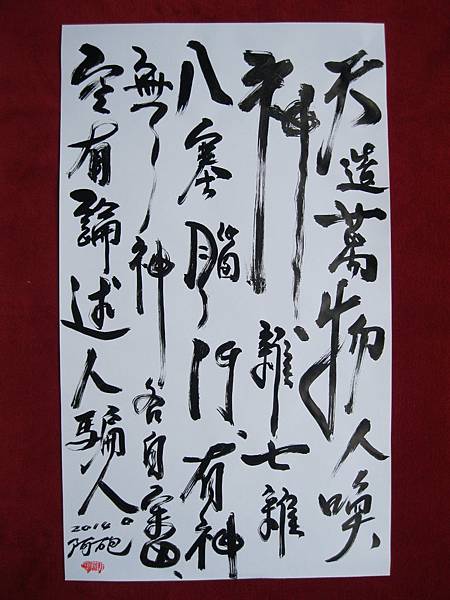 天造萬物人喚
神雜七雜
八塞腦門、有神
無神各自審、
空有論述人騙人。
2014
阿砲